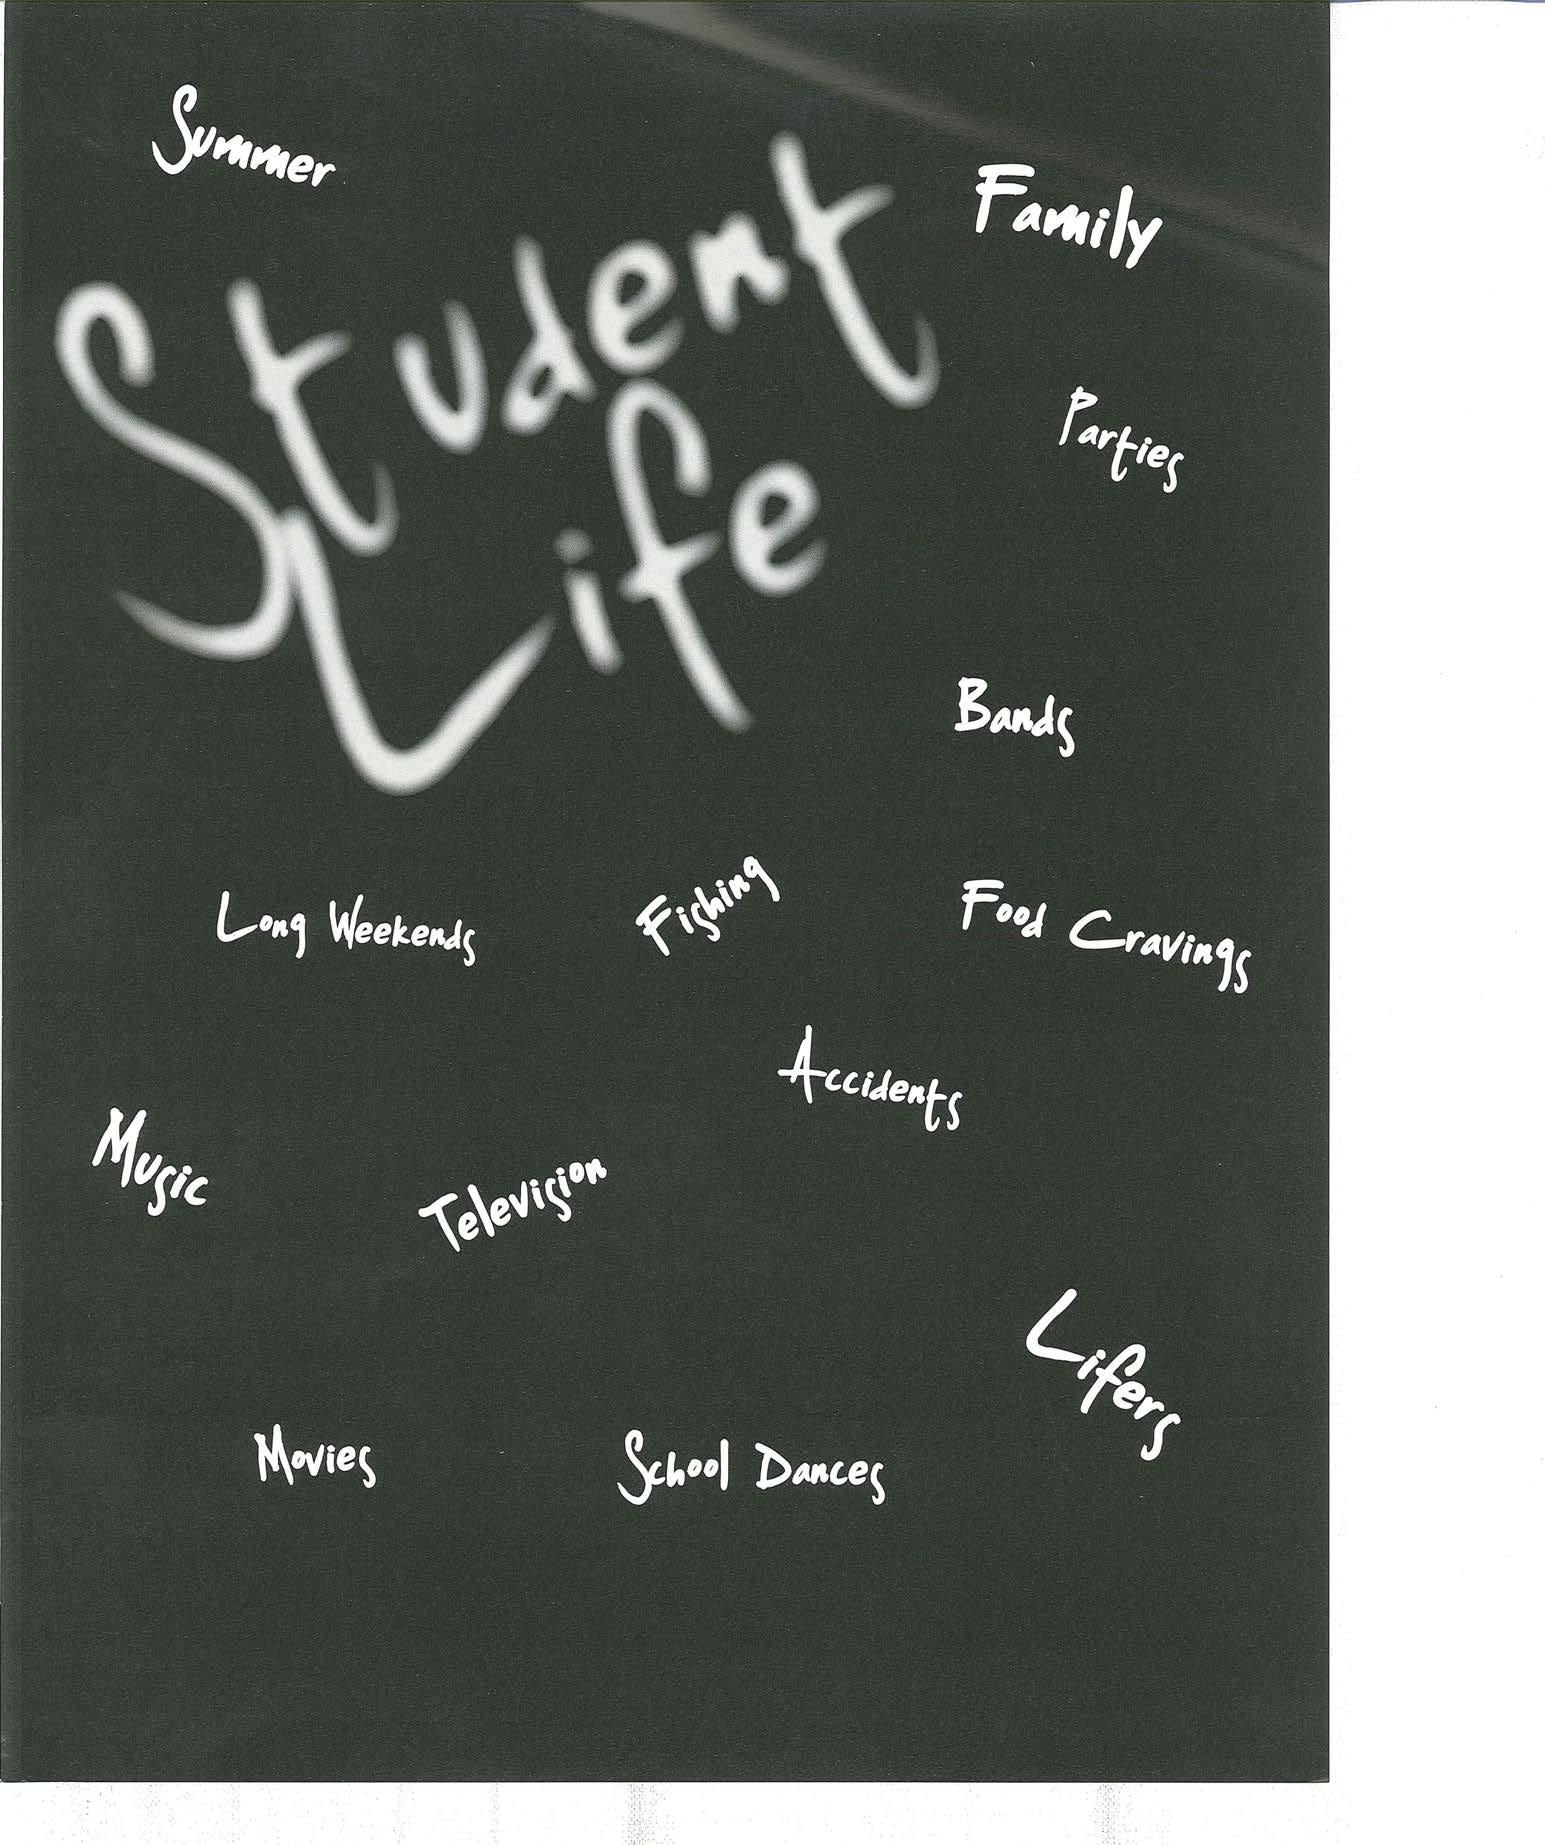 Summer
Family
Student
Life
Parties
Bands
Long Weekends
Fishing
Food Cravings
Accidents
Music
Television
Lifers
Movies
School Dances